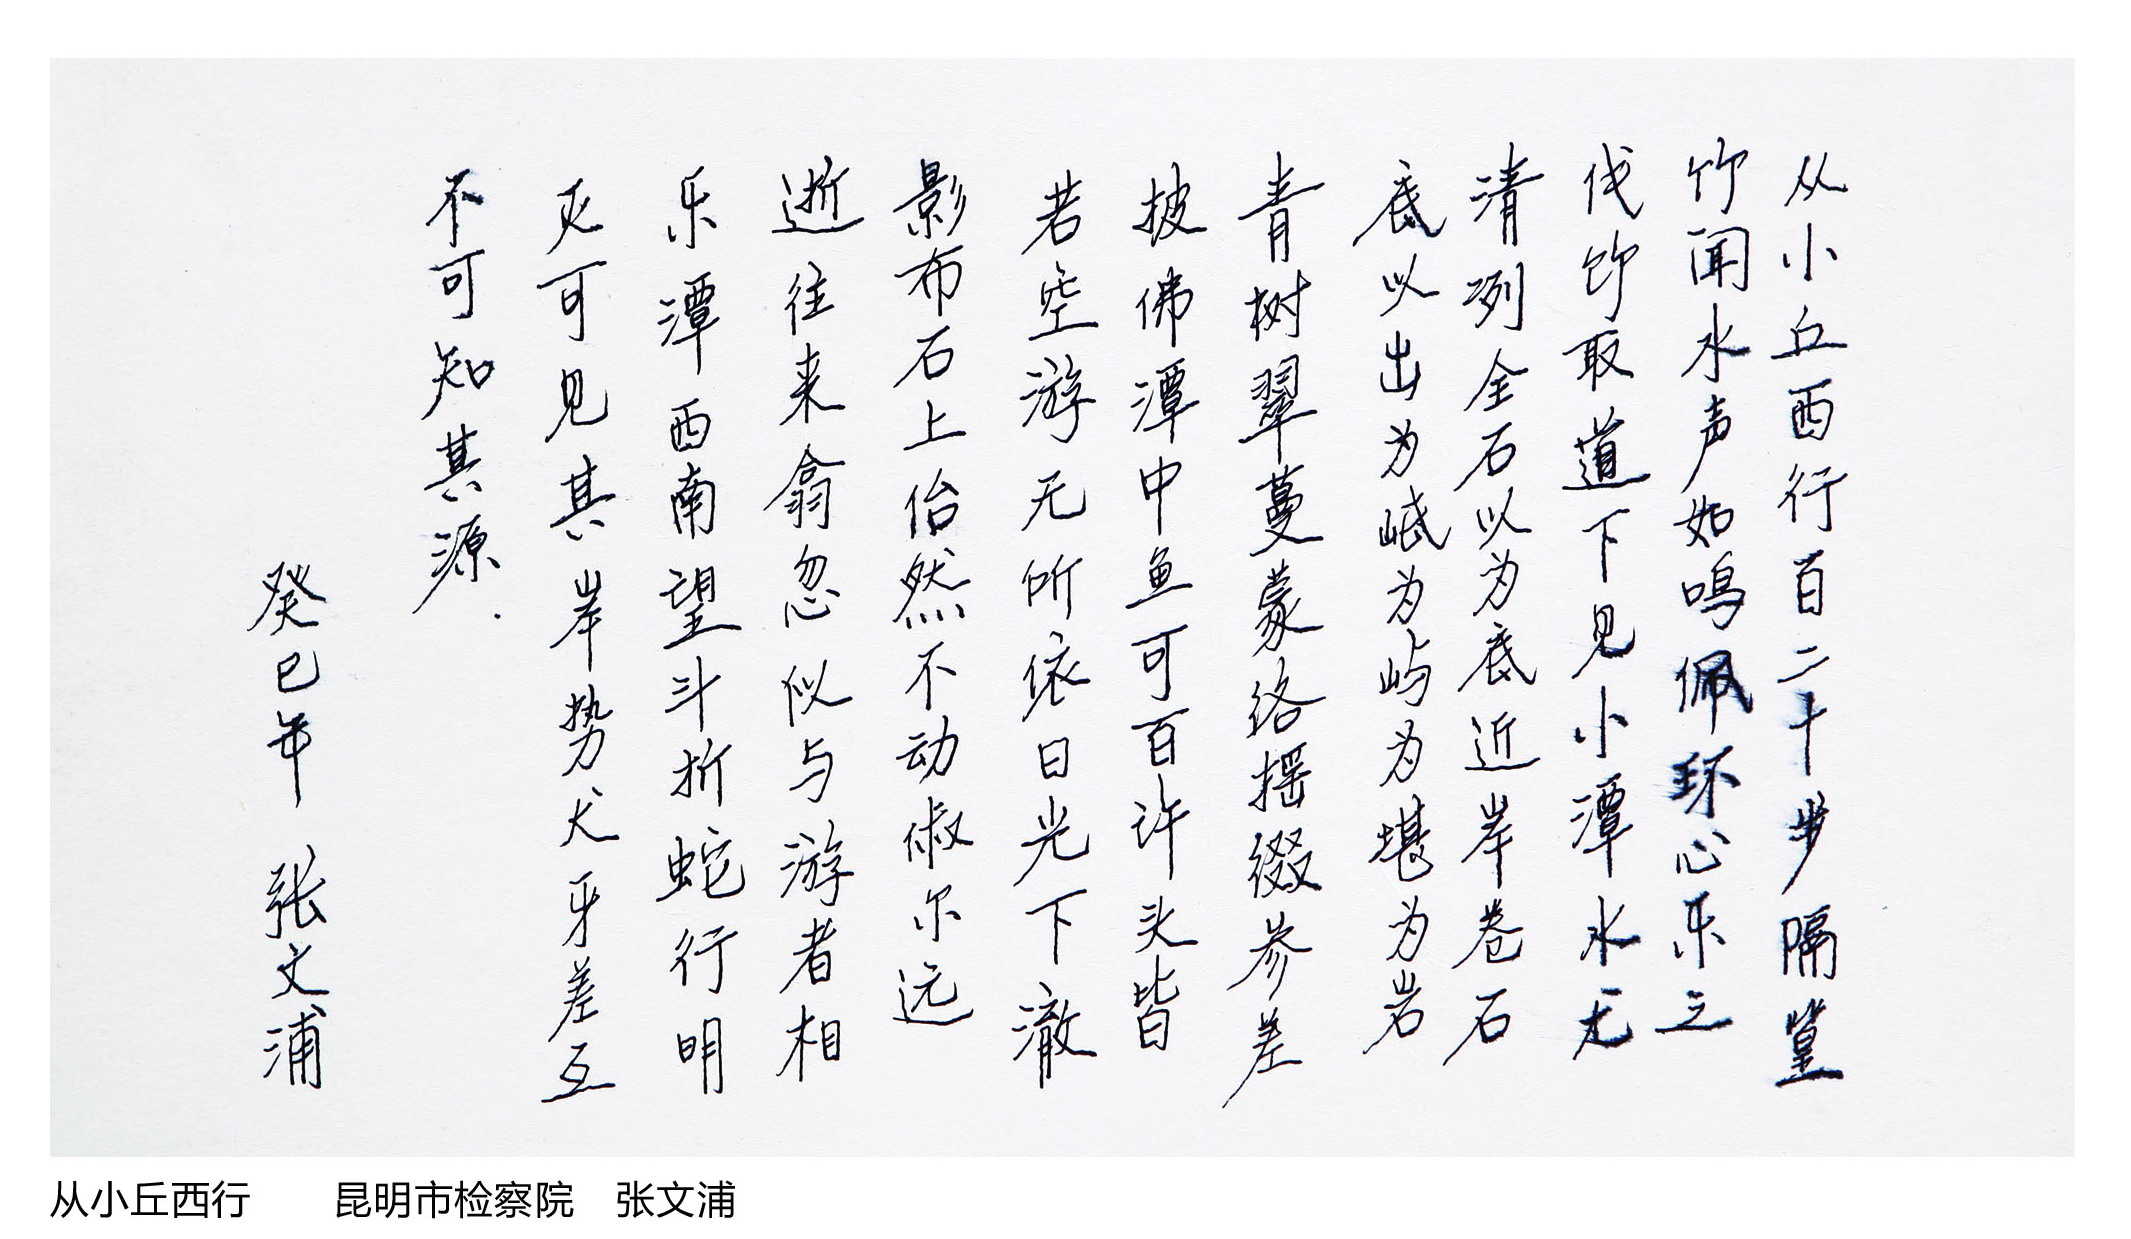 从小丘西行百二十步隔篁
竹闻水声如鸣佩环心乐之
伐竹取道下见小潭水尤
清冽全石以为底近岸卷石
底以出为岻为屿为堪为岩
青树翠蔓蒙络摇缀参差
披佛潭中鱼可百许头皆
若空游无所依日光下澈
影布石上佁然不动俶尔远
逝往来翕忽似与游者相
乐潭西南望斗折蛇行明
灭可见其岸势犬牙差互
不可知其源.
癸巳年 张文浦
从小丘西行 昆明市检察院 张文浦